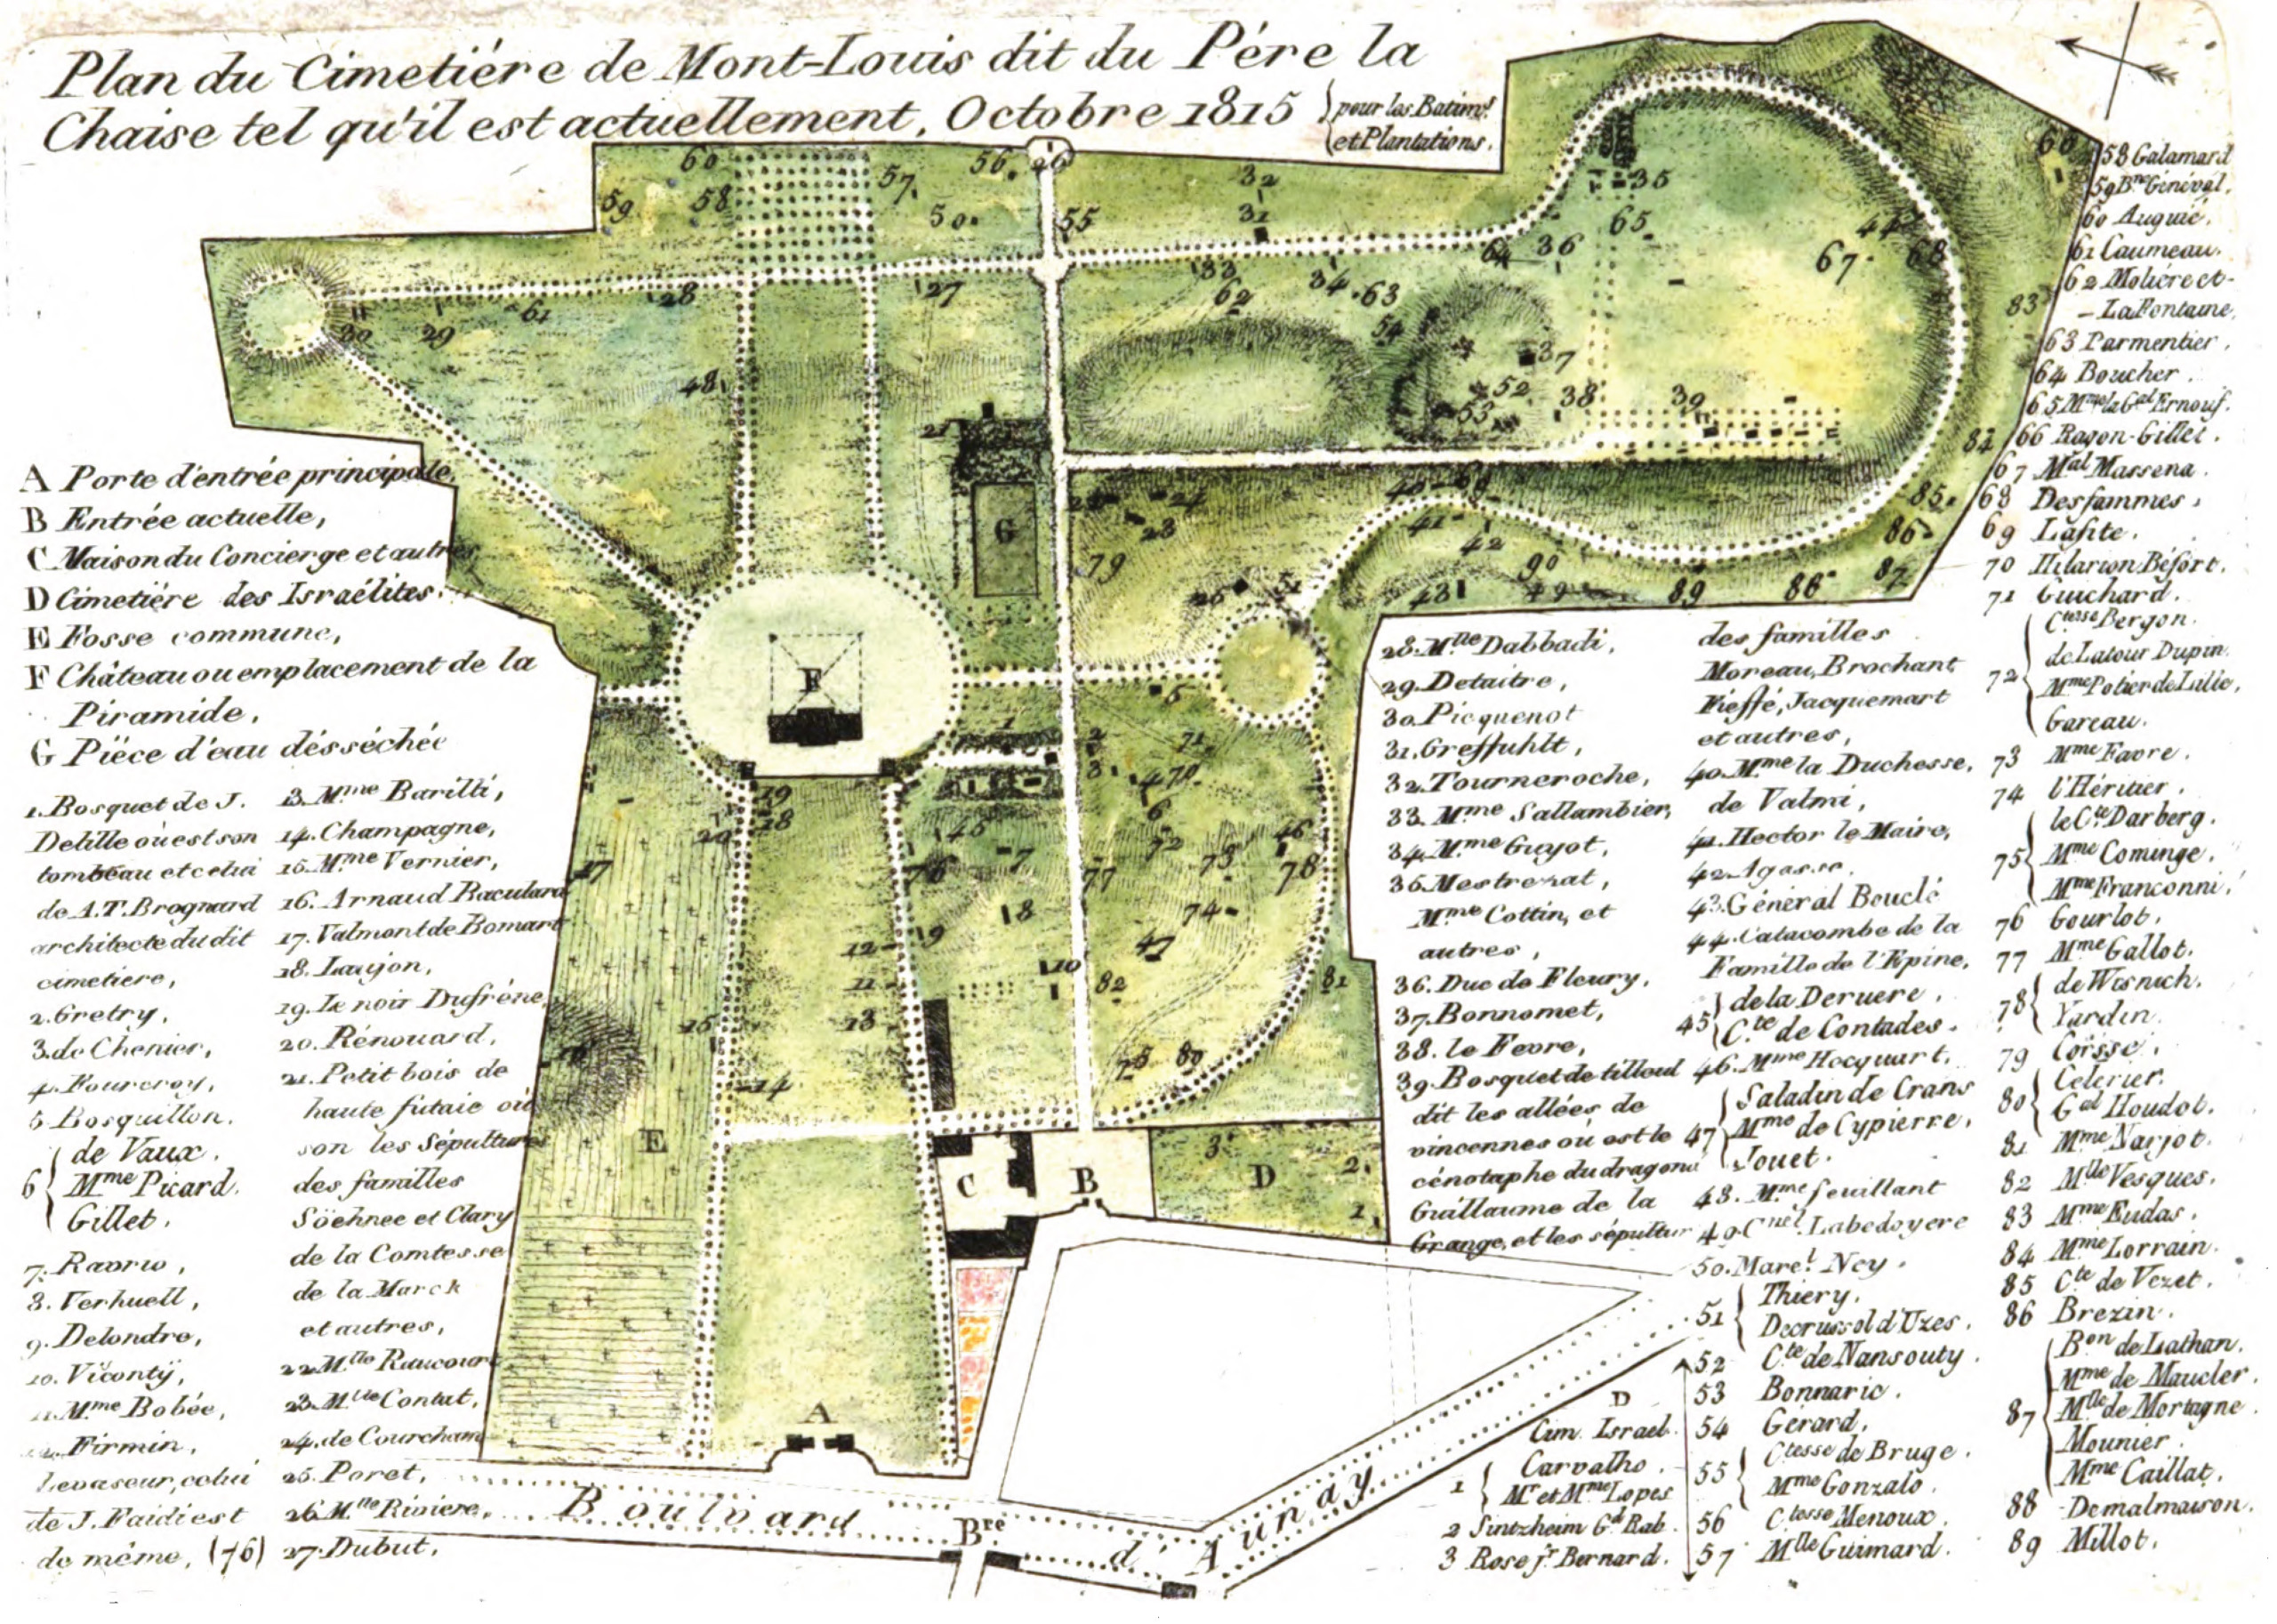 Plan du Cimetiére de Mont-Louis dit du Pére la
Chaise tel qu'il est actuellement, Octobre 1815
pour les Batim.ts
et Plantations.
A Porte d'entrée principale,
B Entrée actuelle,
C Maison du Concierge et autres
D Cimetiére des Israélites.
E Fosse commune,
F Château ou emplacement de la
Piramide,
G Piéce d'eau désséchée
1. Bosquet de J.
Delille où est son
tombeau et celui
de A.T. Brognard
architecte du dit
cimetiere,
2. Gretry,
3. de Chenier,
4. Fourcroy,
5 Bosquillon.
6 de Vaux.
Mme Picard.
Gillet.
7. Ravrio,
8. Verhuell,
9. Delondre,
10. Viconty,
11. Mme Bobée,
12. Firmin,
Levaseur, celui
de J. Faidi est
de même, (76)
13. Mme Barilli,
14. Champagne,
15. Mme Vernier,
16. Arnaud Baculard
17. Valmont de Bomart
18. Laujon,
19. Le noir Dufréne,
20. Rénouard,
21. Petit bois de
haute futaie où
son les Sépultures
des familles
Söehnee et Clary
de la Comtesse
de la Marck
et autres,
22. Mlle Raucourt
23. Mlle Contat,
24. de Courcham
25. Poret,
26. Mlle Riviere,
27. Dubut,
28. Mlle Dabbadi,
29. Detaitre,
30. Picquenot
31. Greffuhlt,
32. Tourneroche,
33. Mme Sallambier,
34. Mme Guyot,
35. Mestrezat,
Mme Cottin, et
autres,
36. Duc de Fleury,
37. Bonnomet,
38. le Fevre,
39. Bosquet de tilleul
dit les allées de
vincennes où est le
cénotaphe du dragon
Guillaume de la
Grange, et les sépultur
des familles
Moreau, Brochant
Fieffé, Jacquemart
et autres,
40. Mme la Duchesse,
de Valmi,
41. Hector le Maire,
42. Agasse.
43. Général Bouclé
44. Catacombe de la
Famille de l'Epine,
45 de la Deruere,
Cte de Contades.
46. Mme Hocquart,
47 Saladin de Crans
Mme de Cypierre,
Jouet.
48. Mme feuillant
49. Cnel Labedoyere
50. Marel Ney.
51 Thiery,
Decrussol d'Uzes.
52 Cte de Nansouty.
53 Bonnaric.
54 Gérard,
55 Ctesse de Bruge.
Mme Gonzalo.
56 Ctesse Menoux.
57 Mlle Guimard.
58 Galamard
59 Bne Génével.
60 Auguié.
61 Caumeau.
62 Moliére et
La Fontaine,
63 Parmentier,
64 Boucher.
65 Mme la Gal Ernouf.
66 Ragon-Gillet.
67 Mal Massena.
68 Desfammes,
69 Lafite.
70 Hilarion Béfort.
71 Guichard.
72 Ctesse Bergon.
de Latour Dupin.
Mme Potier de Lille,
Gareau.
73 Mme Favre.
74 l'Héritier.
75 le Cte Darberg.
Mme Cominge,
Mme Franconni.
76 Gourlot.
77 Mme Gallot.
78 de Wisnich.
Yardin.
79 Coisse.
80 Celerier.
Gal Houdot.
81 Mme Narjot.
82 Mlle Vesques.
83 Mme Eudas.
84 Mme Lorrain.
85 Cte de Vezet.
86 Brezin.
87 Bon de Lathan.
Mme de Maucler.
Mlle de Mortagne.
Mounier.
Mme Caillat.
88 Demalmaison.
89 Millot.
D
Cim. Israel.
1 Carvalho.
Mr et Mme Lopés
2 Sintzheim Gd Rab.
3 Rose jr Bernard.
Boulvard d'Aunay
Bre
A
B
C
D
E
F
G